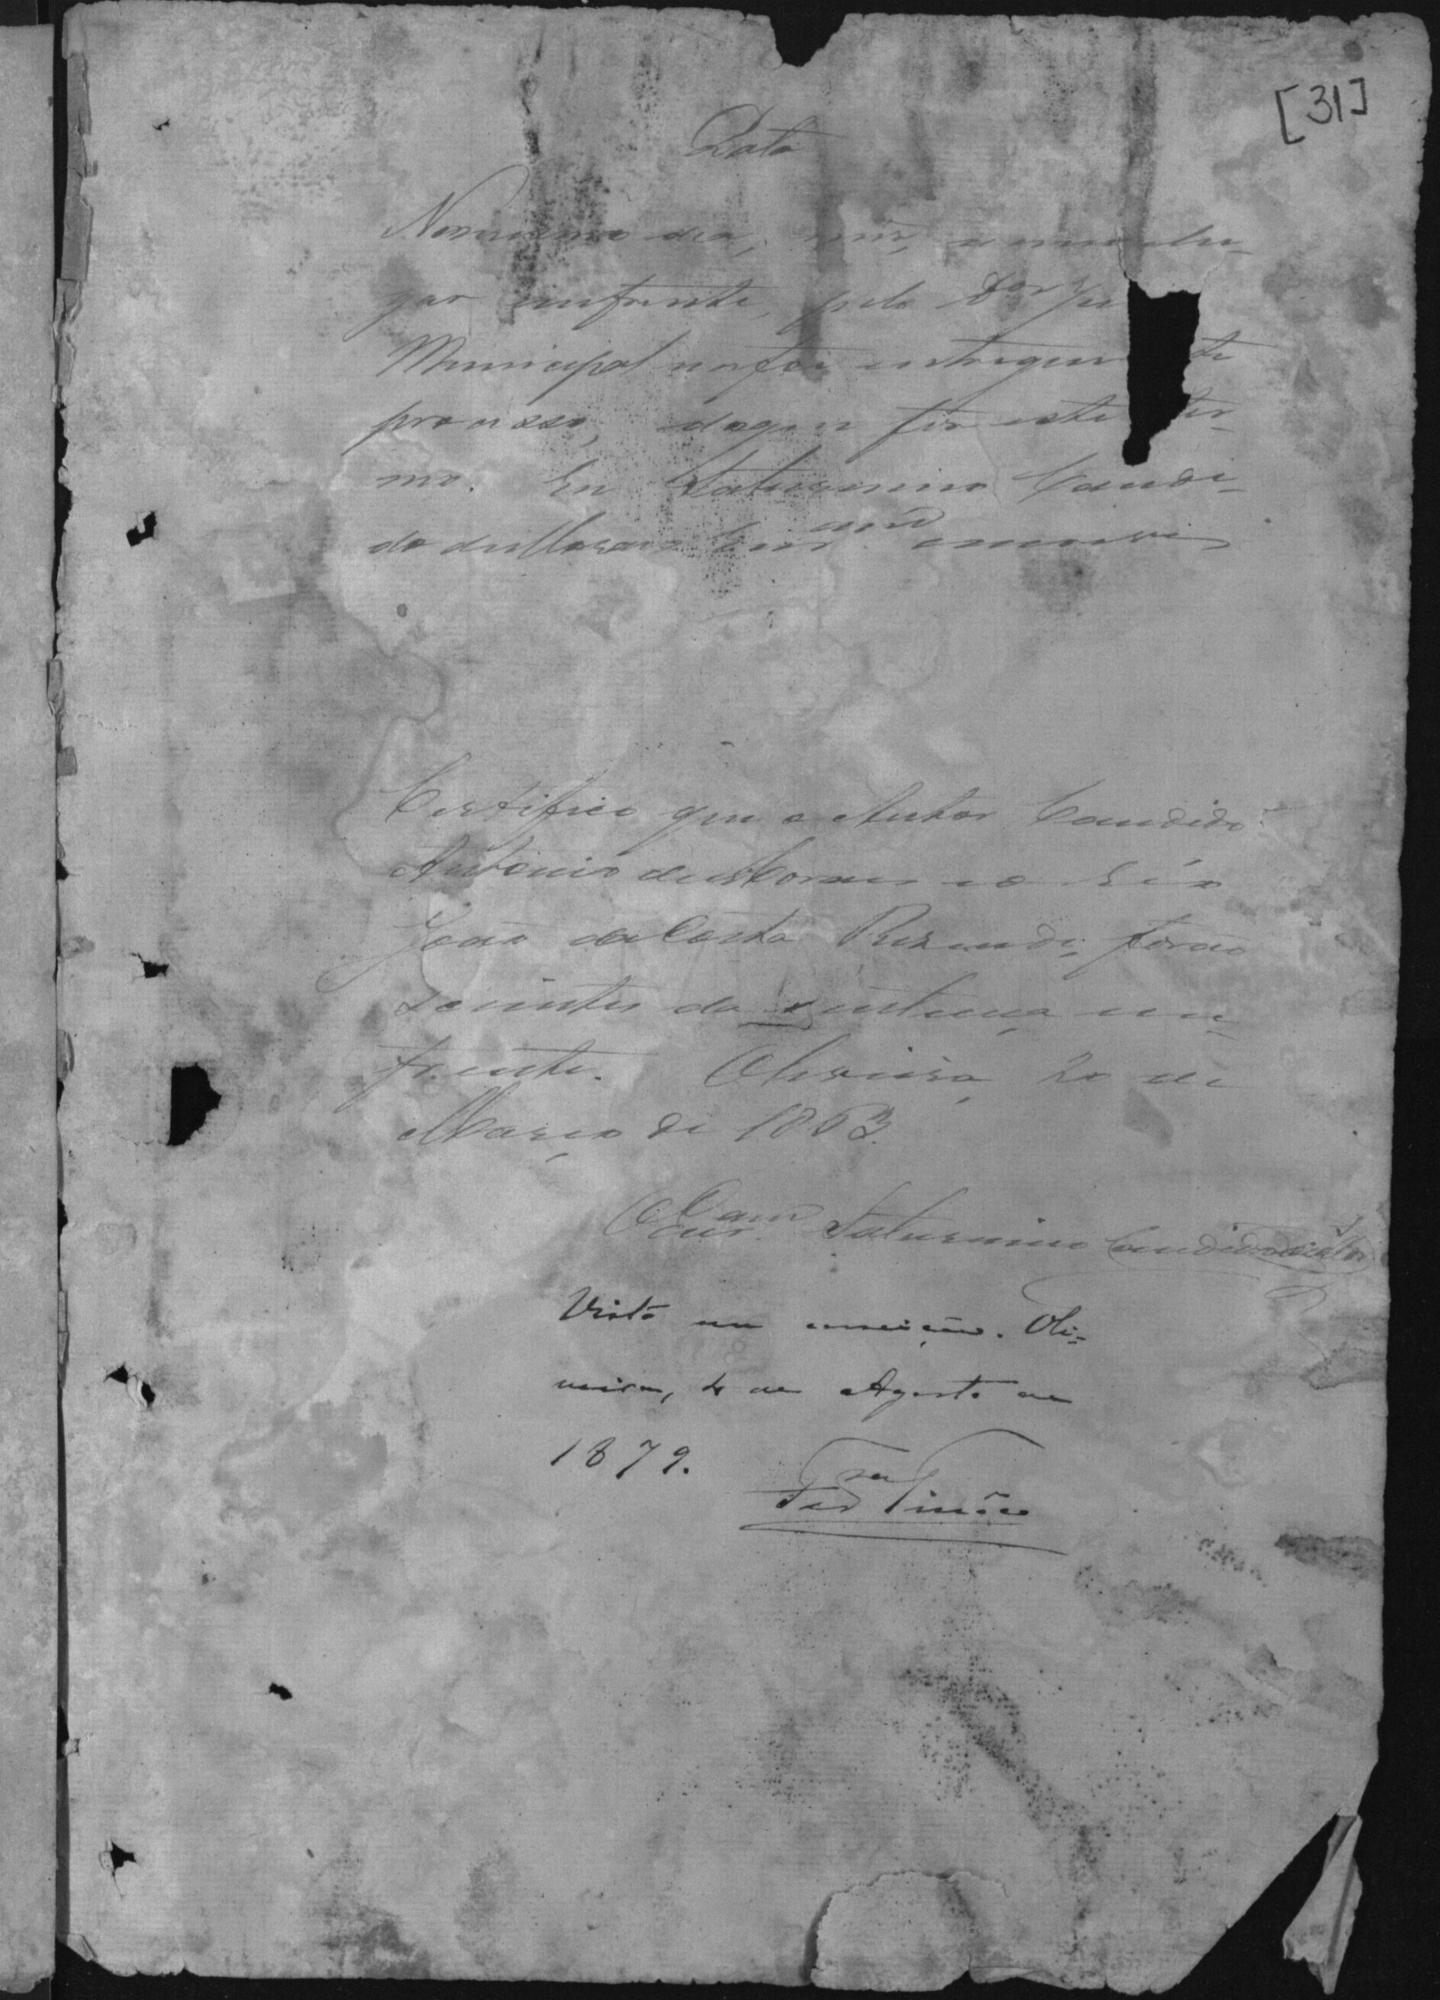 [31]
Data
No mesmo dia, mês, e mes lu-
gar em frente, pelo Dor Ju
Municipal me foi entregue te
processo, do que fiz este ter-
mo. Eu Saturnino Candi-
do de Moraes
Certifico que o Autor Candido
Antonio de Moraes e o Réo
João da Costa Rezende forão
scientes da sentença em
frente. Oliveira 20 de
Março de 1863.
Saturnino Candido
Visto em correição. Oli-
veira, 4 de Agosto de
1879.